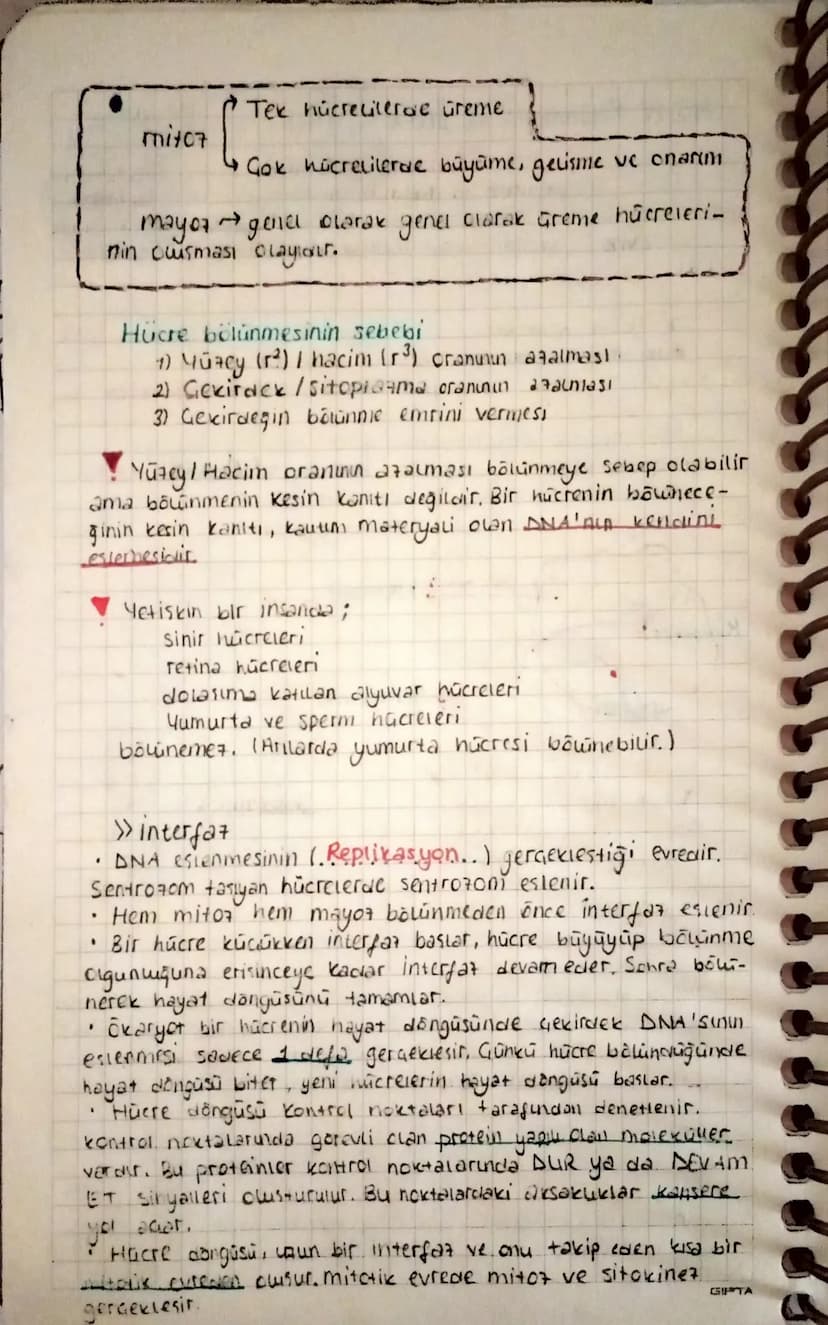 Tek hücrelilerde üreme
mitoz
Çok hücrelilerde büyüme, gelişme ve onarım
mayoz → genel olarak genel olarak üreme hücreleri-
nin oluşması olayıdır.
Hücre bölünmesinin sebebi
1) Yüzey (r²) / hacim (r³) oranının azalması.
2) Çekirdek / sitoplazma oranının azalması
3) Çekirdeğin bölünme emrini vermesi
Yüzey / Hacim oranının azalması bölünmeye sebep olabilir
ama bölünmenin kesin kanıtı değildir. Bir hücrenin bölünece-
ğinin kesin kanıtı, kalıtım materyali olan DNA'nın kendini
eşlemesidir.
Yetişkin bir insanda ;
sinir hücreleri
retina hücreleri
dolaşıma katılan alyuvar hücreleri
Yumurta ve sperm hücreleri
bölünemez. (Arılarda yumurta hücresi bölünebilir.)
>> interfaz
• DNA eşlenmesinin (..Replikasyon..) gerçekleştiği evredir.
Sentrozom taşıyan hücrelerde sentrozom eşlenir.
• Hem mitoz hem mayoz bölünmeden önce interfaz eşlenir.
• Bir hücre küçükken interfaz başlar, hücre büyüyüp bölünme
olgunluğuna erişinceye kadar interfaz devam eder. Sonra bölü-
nerek hayat döngüsünü tamamlar.
• Ökaryot bir hücrenin hayat döngüsünde çekirdek DNA'sının
eşlenmesi sadece 1 defa gerçekleşir. Çünkü hücre bölündüğünde
hayat döngüsü biter, yeni hücrelerin hayat döngüsü başlar.
• Hücre döngüsü kontrol noktaları tarafından denetlenir.
kontrol noktalarında görevli olan protein yapılı olan moleküller
vardır. Bu proteinler kontrol noktalarında DUR ya da DEVAM
ET sinyalleri oluşturulur. Bu noktalardaki aksaklıklar kansere
yol açar.
• Hücre döngüsü, uzun bir interfaz ve onu takip eden kısa bir
mitotik evreden oluşur. mitotik evrede mitoz ve sitokinez
gerçekleşir.
GIPTA